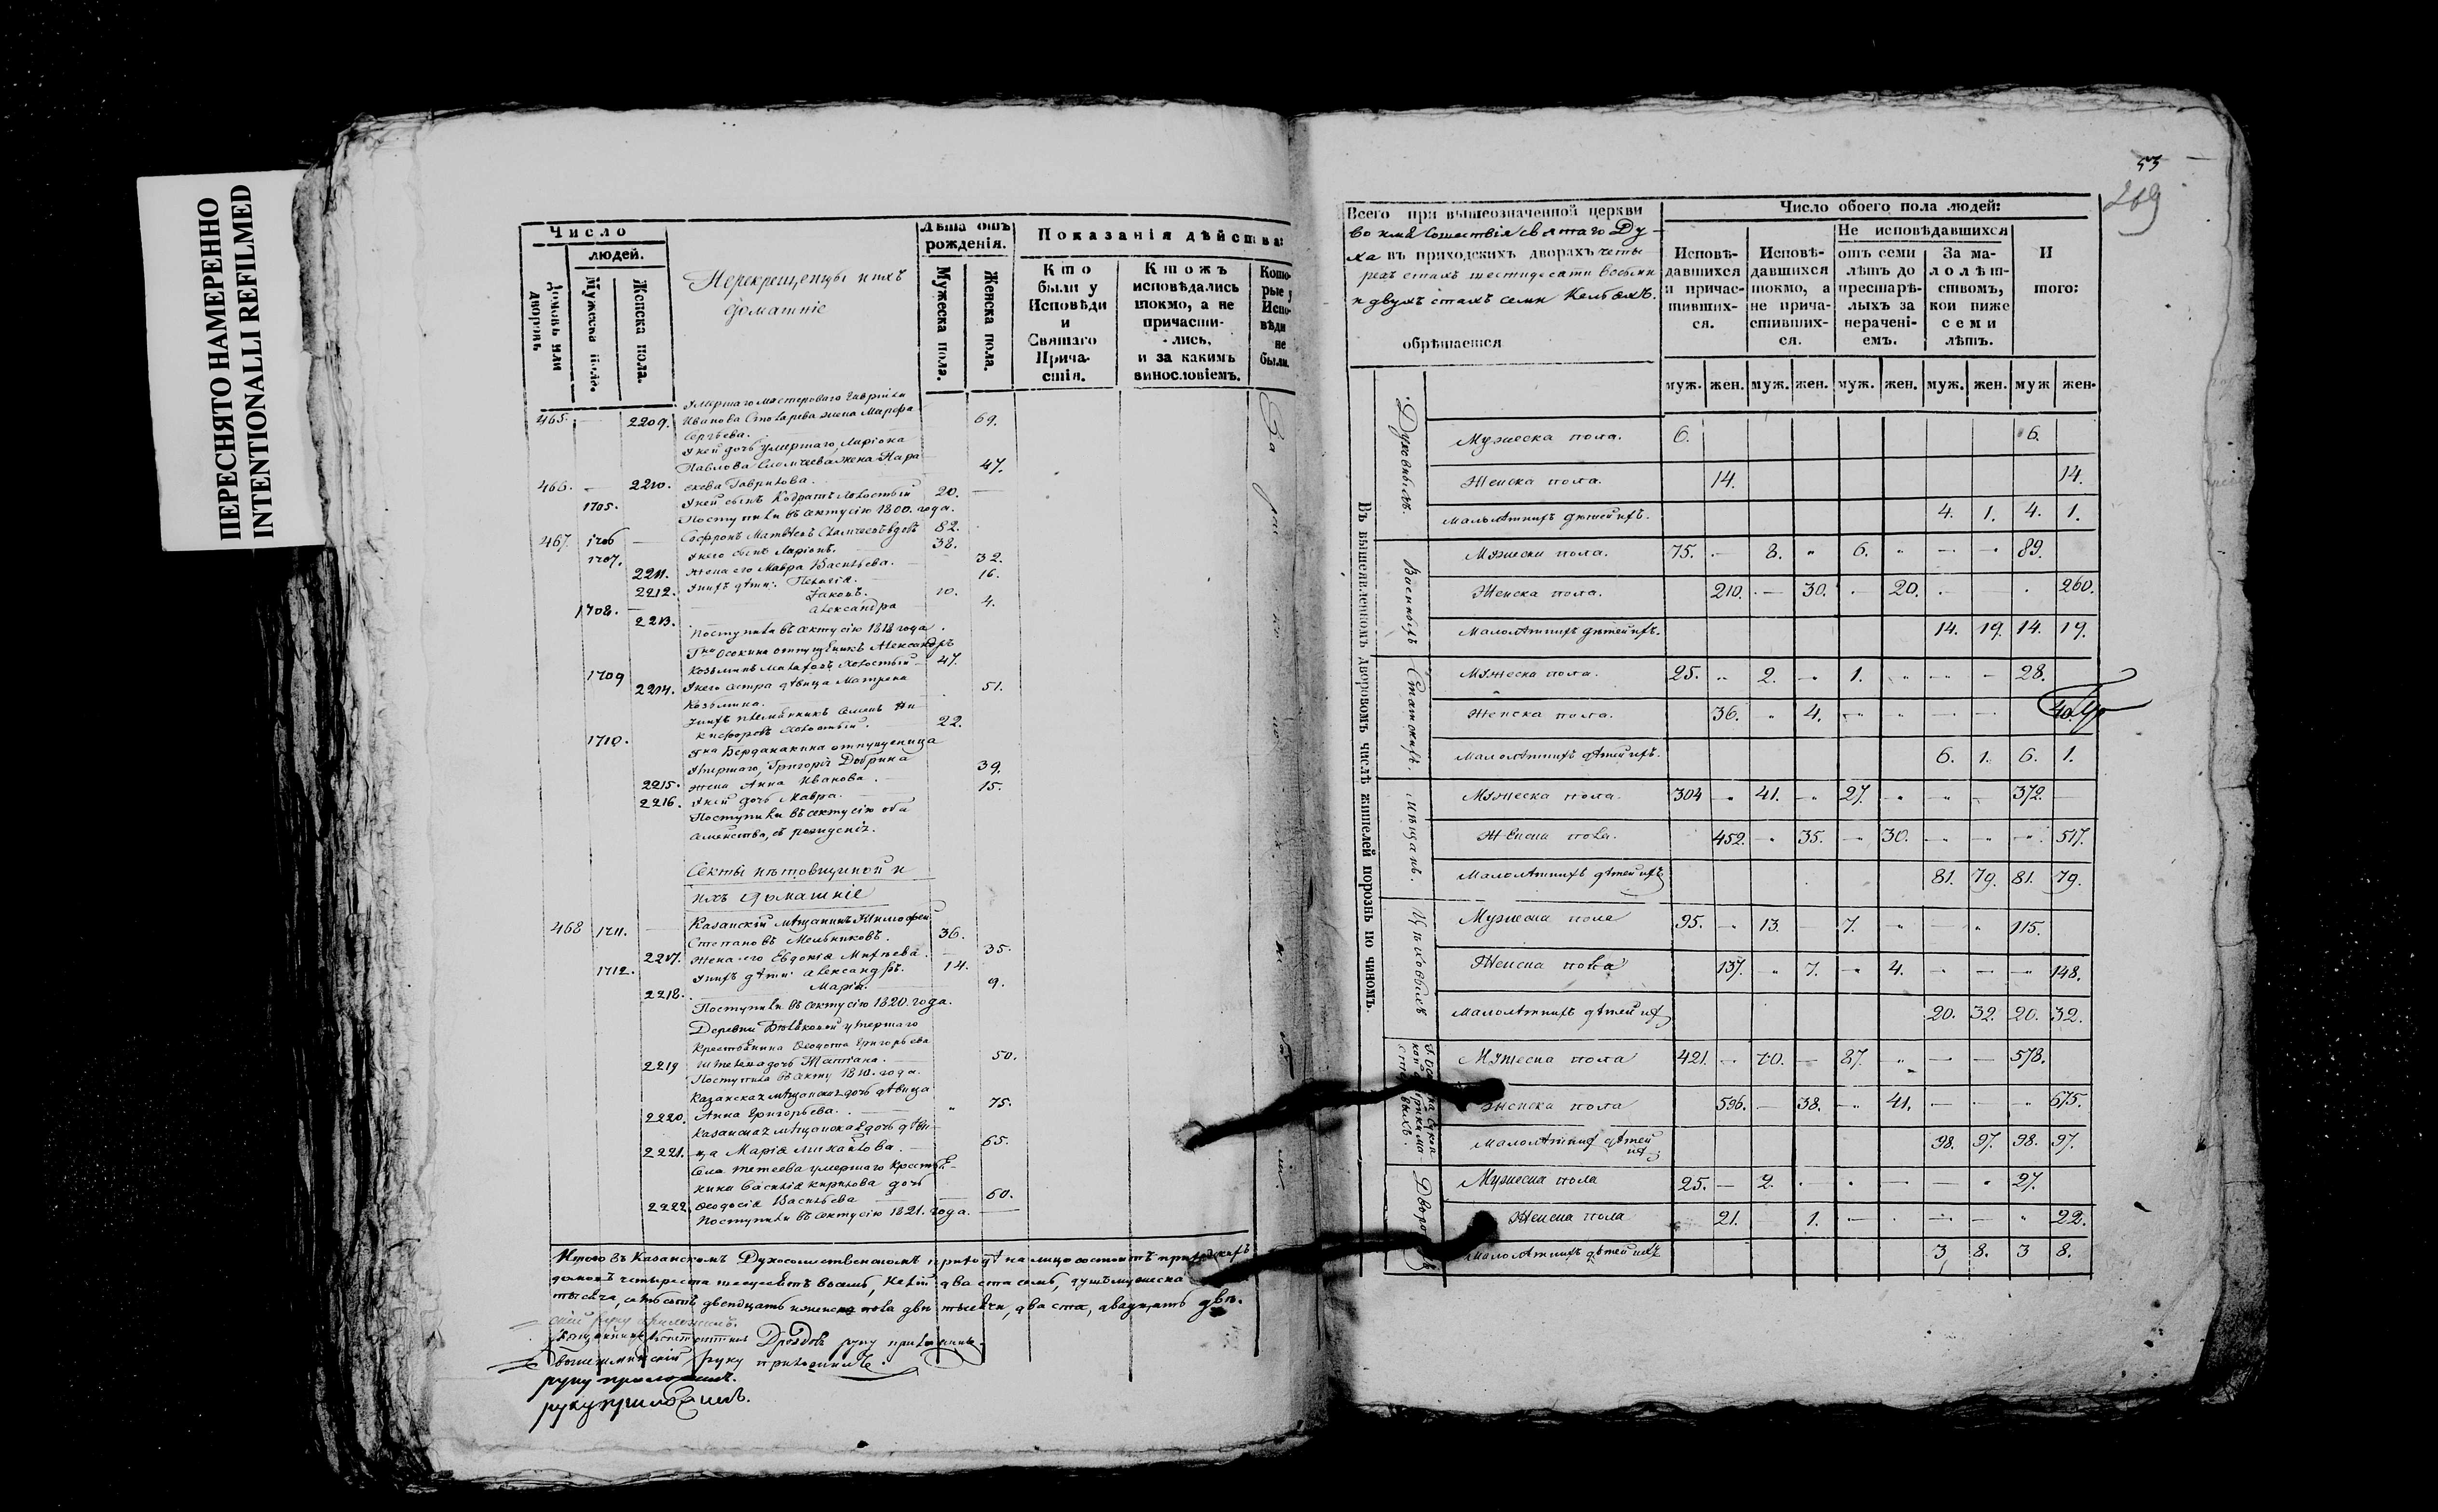 ПЕРЕСНЯТО НАМЕРЕННО
INTENTIONALLI REFILMED
Число
людей.
Домовъ или дворовъ
Мужеска пола.
Женска пола.
Перекрещенцы и ихъ
домашніе
Лѣта отъ рожденія.
Мужеска пола.
Женска пола.
Показанія дѣйства:
Кто были у Исповѣди и Святаго Прича-стія.
Ктожъ исповѣдались токмо, а не причасти-лись, и за какимъ винословіемъ.
Кото-рые у Испо-вѣди не были.
Умершаго мастероваго Гавріила
465. — 2209. Иванова Столарева жена Марфа 69.
Сергѣева.
У ней дочь умершаго Ларіона
Павлова жена Пара
466. — 2210. скева Гаврилова. 47.
1705. У ней сынъ холостый 20. —
Поступили въ секту сію 1800. года.
467. 1706 — Софронъ Матвѣевъ вдовъ 82.
1707. У него сынъ Ларіонъ. 38.
2211. жена его Мавра Васильева. 32.
2212. У нихъ дѣти: Пелагія. 16.
1708. — Іаковъ. 10.
2213. Александра 4.
Поступила въ секту сію 1818 года.
Гна Осокина отпущенникъ Александръ
1709 Козьминъ холостый 47.
2214. У него сестра дѣвица Матрена 51.
Козьмина.
У нихъ племянникъ Семенъ Ни
1710. кифоровъ холостый. 22.
Гна отпущеница
Умершаго Григорія Добрина
2215. жена Анна Иванова. 39.
2216. У ней дочь Мавра. 15.
Поступили въ секту сію оба
семейства, съ рожденія.
Секты нѣтовщиной и
ихъ домашніе
468 1711. Казанскій мѣщанинъ Тимофей
Степановъ Мельниковъ. 36.
2217. Жена его Евдокія Михѣева. 35.
1712. У нихъ дѣти: Александръ. 14.
2218. Марія. 9.
Поступили въ секту сію 1820. года.
Деревни умершаго
Крестьянина Григорьева
2219 дочь Татіана. 50.
Поступила въ секту 1810. года.
Казанская мѣщанская дочь дѣвица
2220. Анна Григорьева. 75.
Казанская мѣщанская дочь дѣви
2221. ца Марія Михайлова. 65.
Села Тетеева умершаго Крестья-
нина Василія Кирилова дочь
2222. Феодосія Васильева 60.
Поступили въ секту сію 1821. года.
Итого въ Казанскомъ приходѣ на лицо состоитъ приходскихъ
домовъ четыреста шесдесятъ восемь, келій двести семь, душъ мужеска
тысяча, семьсотъ двенадцать и женска пола двѣ тысячи, двести, двадцать двѣ.
Дроздовъ руку приложилъ.
руку приложилъ.
руку приложилъ.
руку приложилъ.
53
269
Всего при вышеозначенной церкви
во имя Сошествія Святаго Ду-
ха въ приходскихъ дворахъ четы
рехъ стахъ шестидесяти восьми
и двухъ стахъ семи Кельяхъ.
обрѣтается
Число обоего пола людей:
Исповѣ-давшихся и причас-тивших-ся.
Исповѣ-давшихся токмо, а не прича-стивших-ся.
Не исповѣдавшихся
отъ семи лѣтъ до престарѣ-лыхъ за нерачені-емъ.
За ма-лолѣт-ствомъ, кои ниже семи лѣтъ.
И того:
муж. жен. муж. жен. муж. жен. муж. жен. муж жен.
Въ вышеявленномъ дворовомъ числѣ жителей порознь по чиномъ.
Духовныхъ.
Мужеска пола. 6. 6.
Женска пола. 14. 14.
Малолѣтнихъ дѣтей ихъ. 4. 1. 4. 1.
Военныхъ
Мужеска пола. 75. — 8. " 6. " — — 89.
Женска пола. 210. — 30. — 20. 260.
Малолѣтнихъ дѣтей ихъ. 14. 19. 14. 19.
Статскихъ.
Мужеска пола. 25. " 2. — 1. — — 28.
Женска пола. 36. " 4. — — — 40.
Малолѣтнихъ дѣтей ихъ. 6. 1. 6. 1.
Мѣщанъ.
Мужеска пола. 304 — 41. — 27. — — 372.
Женска пола. 452. — 35. — 30. — — 517.
Малолѣтнихъ дѣтей ихъ 81. 79. 81. 79.
Цеховыхъ
Мужеска пола 95. — 13. — 7. — — 115.
Женска пола 137. — 7. — 4. — — 148.
Малолѣтнихъ дѣтей ихъ 20. 32. 20. 32.
Мужеска пола 421. — 70. — 87. — — 578.
Женска пола 596. — 38. — 41. — — 675.
Малолѣтних дѣтей ихъ 98. 97. 98. 97.
Мужеска пола 25. — 2. — — 27.
Женска пола 21. 1. — — 22.
Малолѣтнихъ дѣтей ихъ 3 8. 3 8.